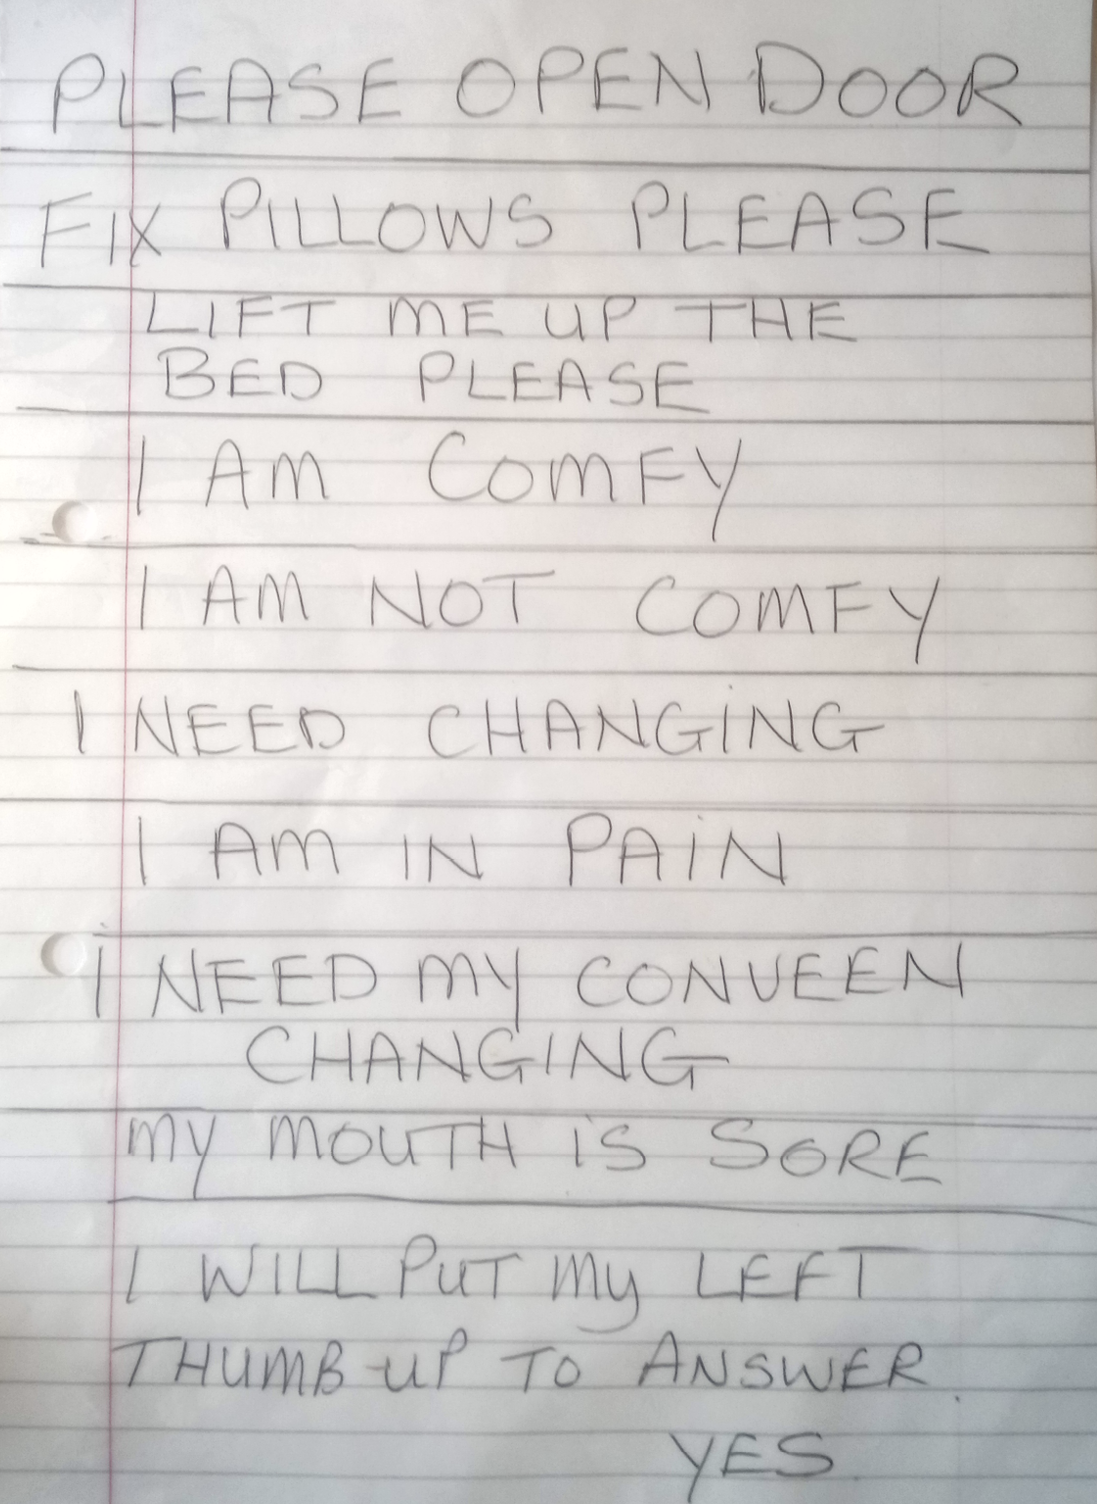 PLEASE OPEN DOOR
FIX PILLOWS PLEASE
LIFT ME UP THE
BED PLEASE
I AM COMFY
I AM NOT COMFY
I NEED CHANGING
I AM IN PAIN
I NEED MY CONVEEN
CHANGING
MY MOUTH IS SORE
I WILL PUT MY LEFT
THUMB UP TO ANSWER.
YES